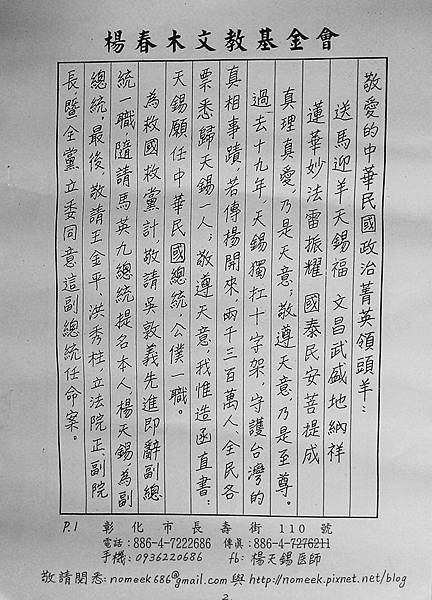 楊春木文教基金會
敬愛的中華民國政治菁英領頭羊：
送馬迎羊天錫福 文昌武盛地納祥
蓮華妙法雷振耀 國泰民安菩提成
真理真愛，乃是天意；敬尊天意，乃是至尊。
過去十九年，天錫獨扛十字架，守護台灣的
真相事蹟，若傳揚開來，兩千三百萬人，全民各
票悉歸天錫一人，敬遵天意，我惟造函直書：
天錫願任中華民國總統，公僕一職。
為救國救黨計，敬請吳敦義先進即辭副總
統一職，隨請馬英九總統提名本人楊天錫為副
總統。最後，敬請王金平、洪秀柱，立法院正、副院
長，暨全黨立委同意這副總統任命案。
P.1 彰化市長壽街110號
電話：886-4-7222686 傳真：886-4-7276211
手機：0936220686 fb：楊天錫医師
敬請閱悉：nomeek686@gmail.com與http://nomeek.pixnet.net/blog
2